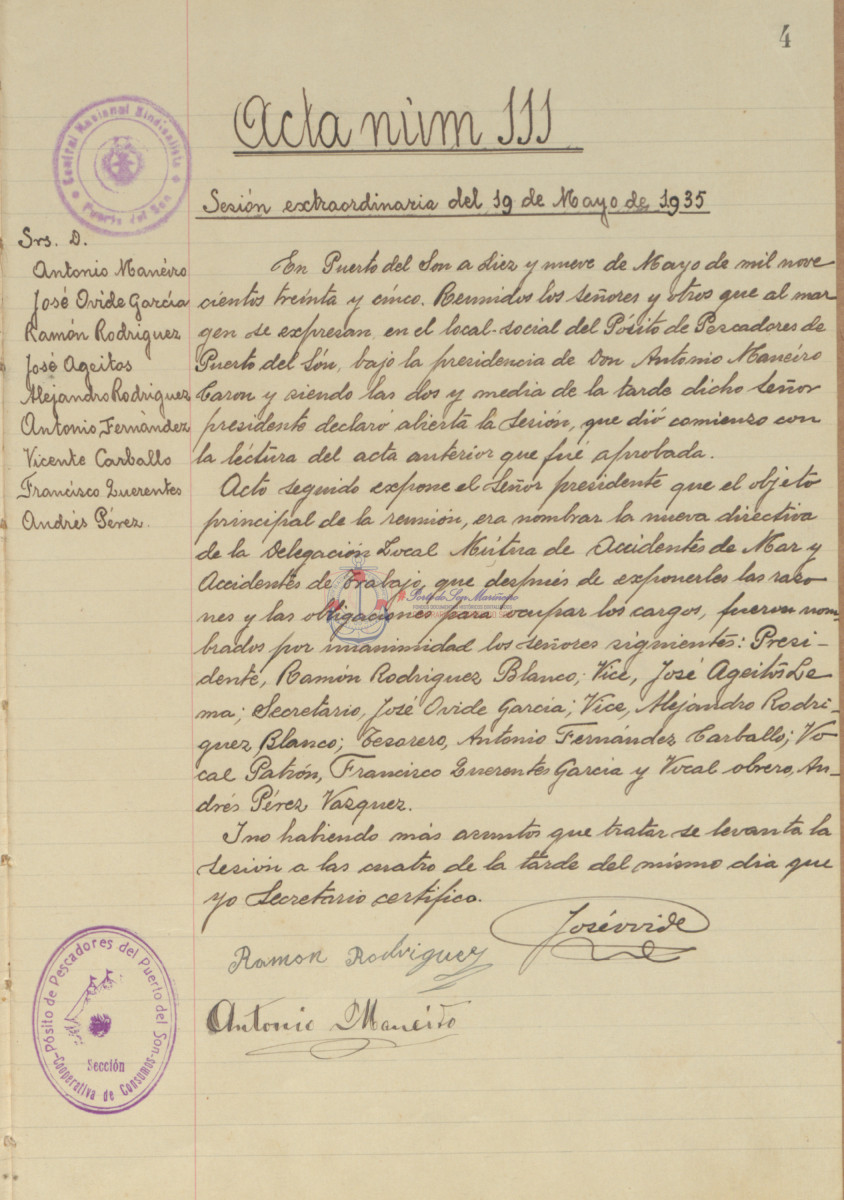 4
Acta núm III
Central Nacional Sindicalista
Puerto del Son
Sesión extraordinaria del 19 de Mayo de 1935
Srs. D.
Antonio Manéiro
José Ovide García
Ramón Rodriguez
José Ageitos
Alejandro Rodriguez
Antonio Fernàndez
Vicente Carballo
Francisco Querentes
Andrés Pérez.
En Puerto del Son a diez y nueve de Mayo de mil nove
cientos treinta y cinco. Reunidos los señores y otros que al mar
gen se expresan, en el local-social del Pósito de Pescadores de
Puerto del Són, bajo la presidencia de Don Antonio Maneiro
Caron y siendo las dos y media de la tarde dicho señor
presidente declaró abierta la sesión, que dió comienzo con
la léctura del acta anterior que fué aprobada.
Acto seguido expone el señor presidente que el objeto
principal de la reunión, era nombrar la nueva directiva
de la Delegación Local Mútua de Accidentes de Mar y
Accidentes de Trabajo, que después de exponerles las razo
nes y las obligaciones para ocupar los cargos, fueron nom-
brados por unanimidad los señores siguientes: Presi-
dente, Ramón Rodriguez Blanco; Vice, José Ageitos Le
ma; Secretario, José Ovide García; Vice, Alejandro Rodri-
guez Blanco; Tesorero, Antonio Fernández Carballo; Vo
cal Patrón, Francisco Querentes Garcia y Vocal obrero, An-
drés Pérez Vazquez.
I no habiendo más asuntos que tratar se levanta la
sesión a las cuatro de la tarde del mismo dia que
yo Secretario certifico.
José Ovide
Ramon Rodriguez
Antonio Maneiro
Porto do Son Mariñeiro
Pósito de Pescadores del Puerto del Son
Sección
Cooperativa de Consumos